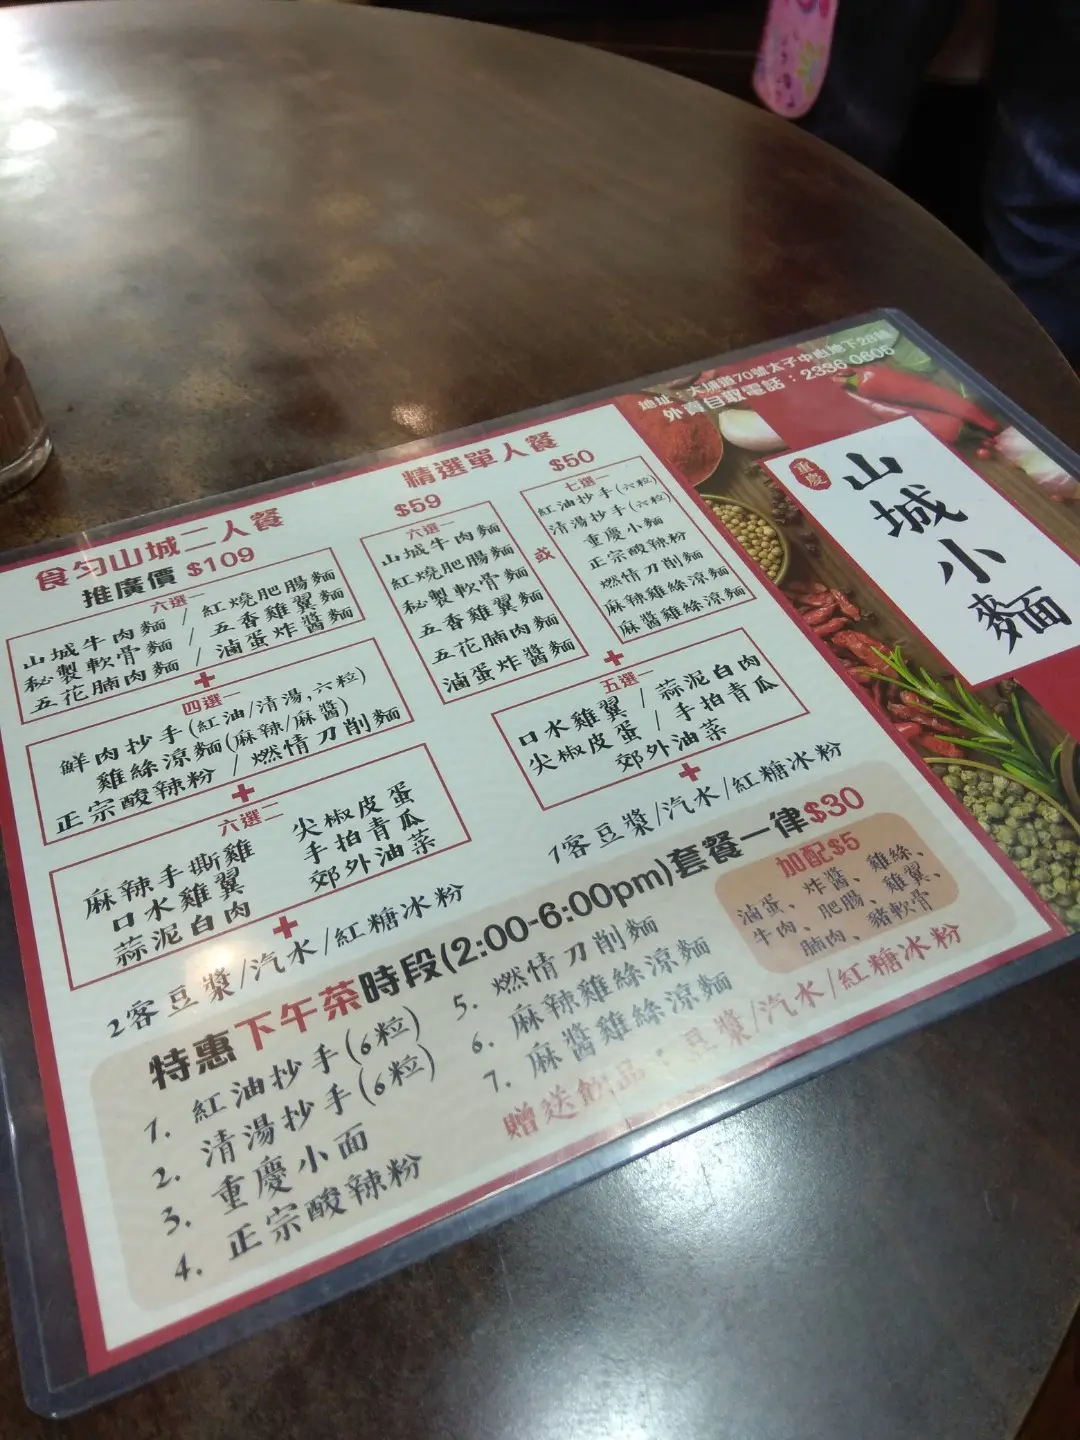 食勻山城二人餐
推廣價 $109
六選一
山城牛肉麵 / 紅燒肥腸麵
秘製軟骨麵 / 五香雞翼麵
五花腩肉麵 / 滷蛋炸醬麵
+
四選一
鮮肉抄手(紅油/清湯,六粒)
雞絲涼麵(麻辣/麻醬)
正宗酸辣粉 / 燃情刀削麵
+
六選二
麻辣手撕雞 尖椒皮蛋
口水雞翼 手拍青瓜
蒜泥白肉 郊外油菜
+
2客豆漿/汽水/紅糖冰粉
精選單人餐
$59
六選一
山城牛肉麵
紅燒肥腸麵
秘製軟骨麵
五香雞翼麵
五花腩肉麵
滷蛋炸醬麵
或
$50
七選一
紅油抄手(六粒)
清湯抄手(六粒)
重慶小麵
正宗酸辣粉
燃情刀削麵
麻辣雞絲涼麵
麻醬雞絲涼麵
+
五選一
口水雞翼 / 蒜泥白肉
尖椒皮蛋 / 手拍青瓜
郊外油菜
+
1客豆漿/汽水/紅糖冰粉
特惠下午茶時段(2:00-6:00pm)套餐一律$30
1. 紅油抄手(6粒)
2. 清湯抄手(6粒)
3. 重慶小面
4. 正宗酸辣粉
5. 燃情刀削麵
6. 麻辣雞絲涼麵
7. 麻醬雞絲涼麵
加配$5
滷蛋、炸醬、雞絲、
牛肉、肥腸、雞翼、
腩肉、豬軟骨
贈送飲品：豆漿/汽水/紅糖冰粉
地址：大埔道70號太子中心地下28舖
外賣自取電話：2336 0605
重慶
山城小麵